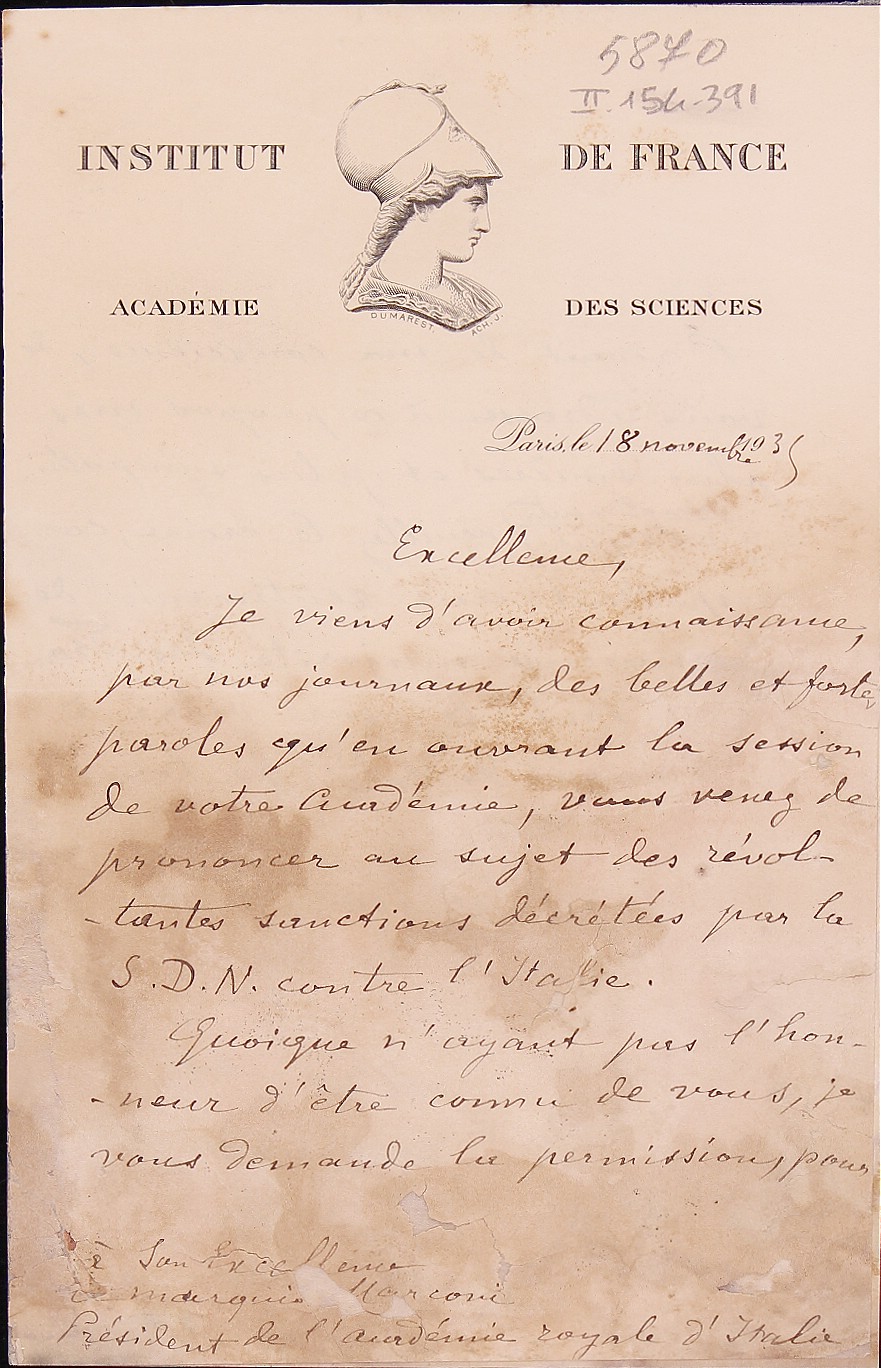 5870
II.154.391
INSTITUT DE FRANCE
ACADÉMIE DES SCIENCES
DUMAREST. ACH. J.
Paris, le 18 novembre 1935
Excellence,
Je viens d'avoir connaissance,
par nos journaux, des belles et fortes
paroles qu'en ouvrant la session
de votre Académie, vous venez de
prononcer au sujet des révol-
-tantes sanctions décrétées par la
S.D.N. contre l'Italie.
Quoique n'ayant pas l'hon-
-neur d'être connu de vous, je
vous demande la permission, pour
à Son Excellence
le marquis Marconi
Président de l'académie royale d'Italie